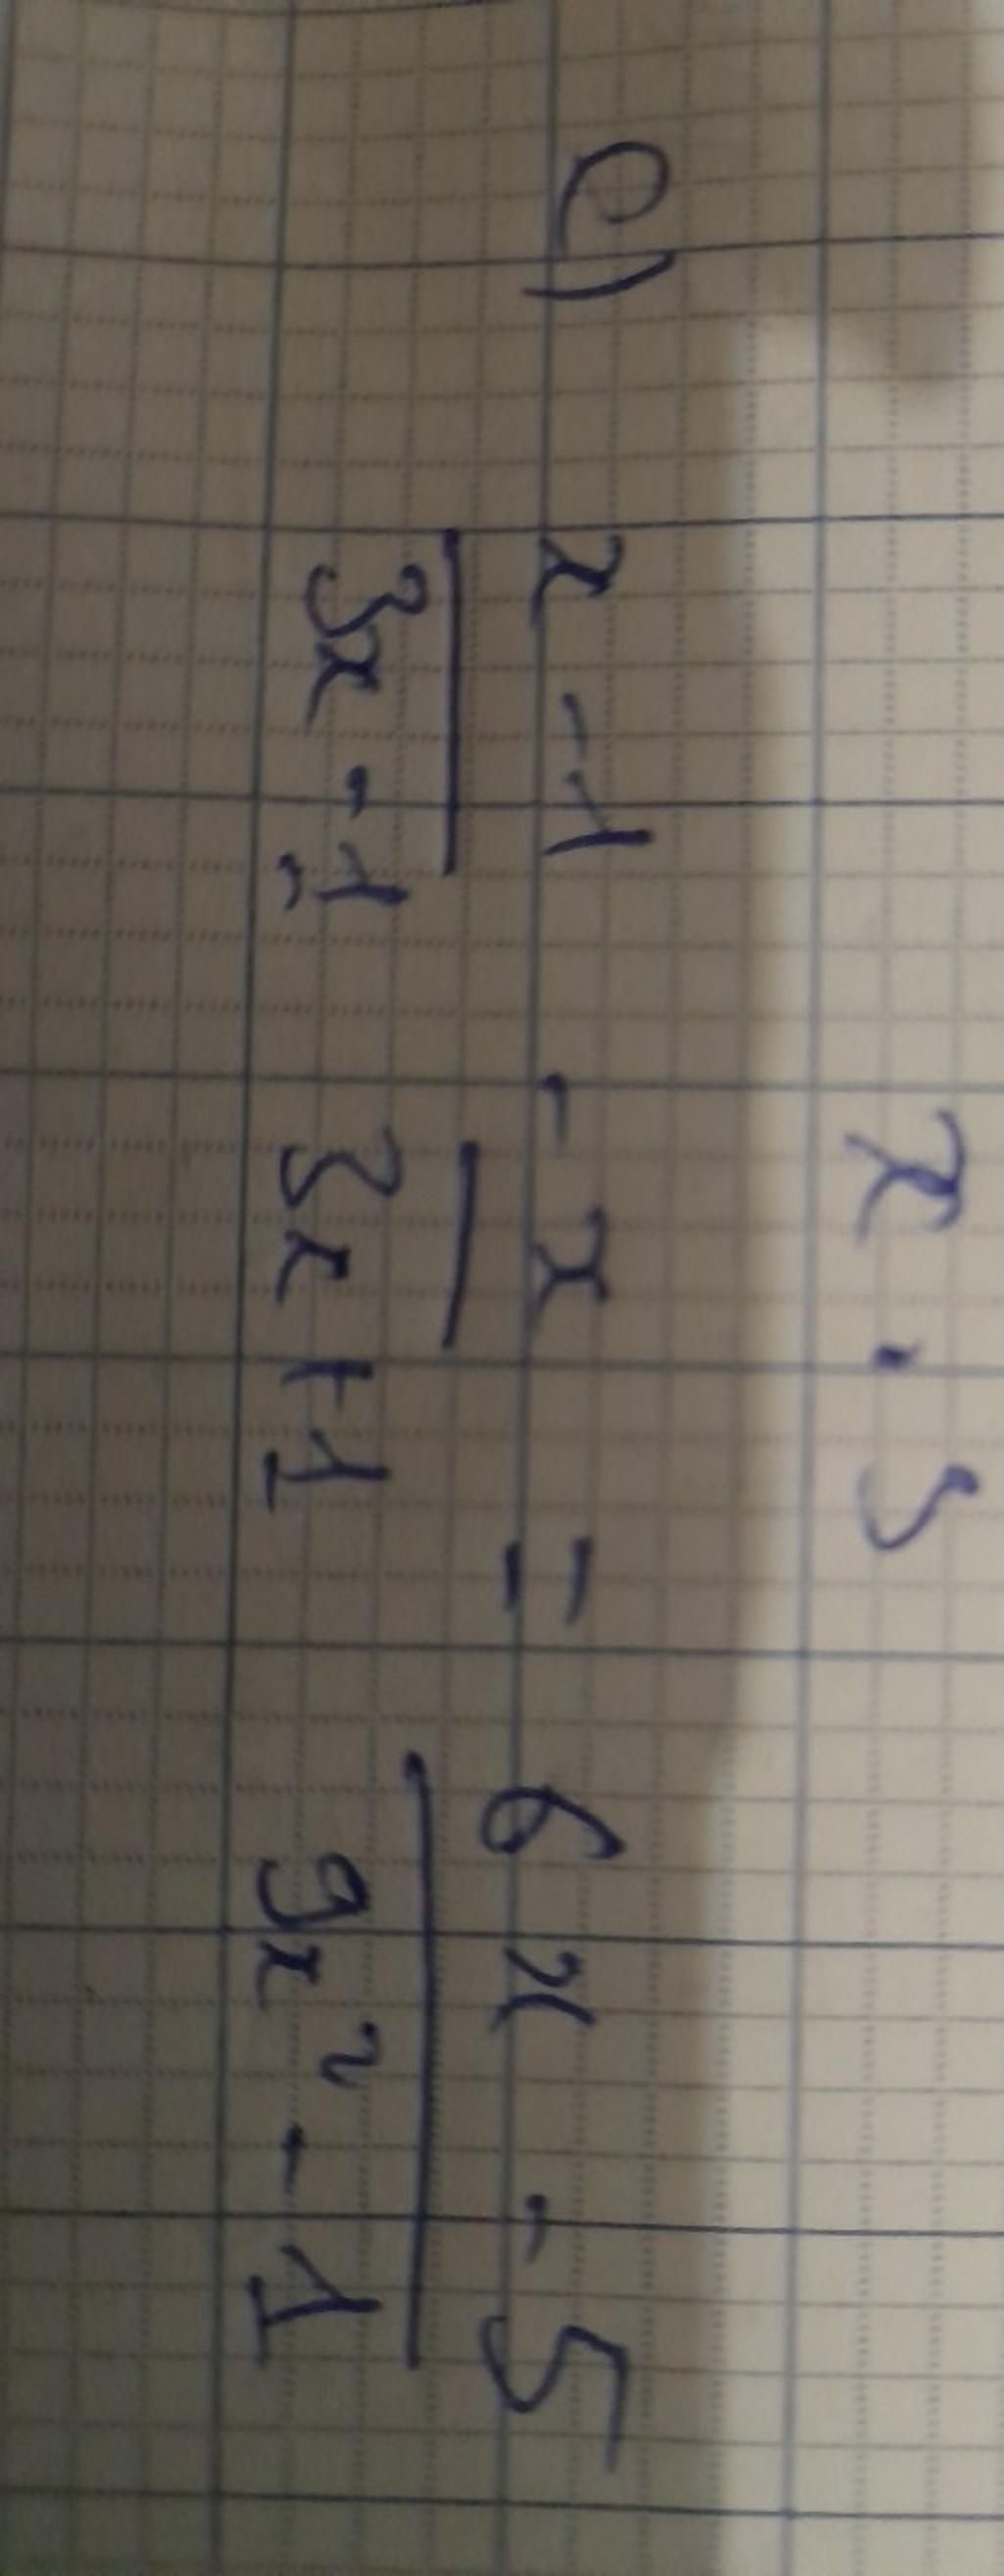 e) \frac{x - 1}{3x - 1} - \frac{x}{3x + 1} = \frac{6x - 5}{9x^2 - 1}